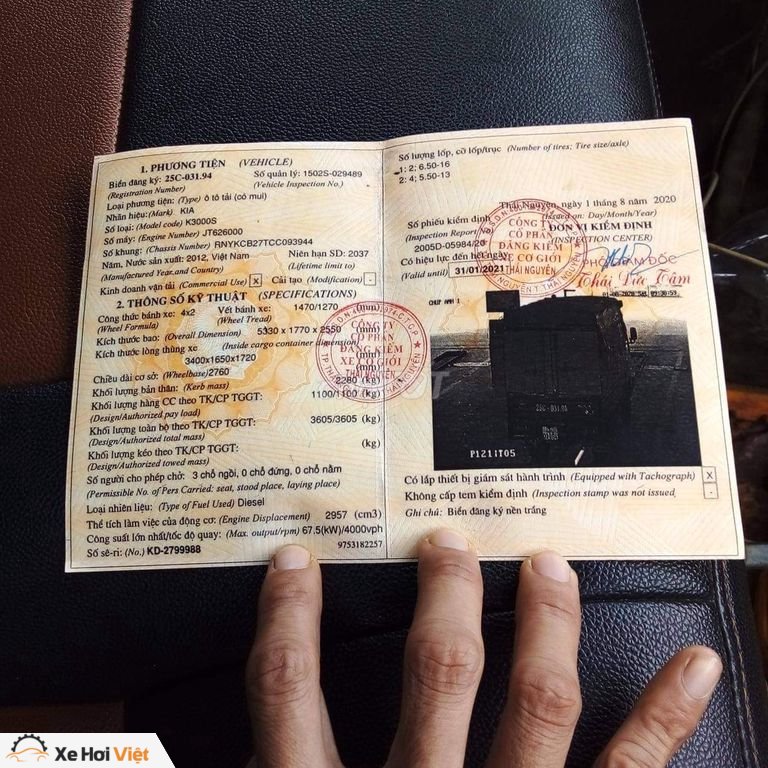 1. PHƯƠNG TIỆN (VEHICLE)
Biển đăng ký: 25C-031.94 Số quản lý: 1502S-029489
(Registration Number) (Vehicle Inspection No.)
Loại phương tiện: (Type) ô tô tải (có mui)
Nhãn hiệu: (Mark) KIA
Số loại: (Model code) K3000S
Số máy: (Engine Number) JT626000
Số khung: (Chassis Number) RNYKCB27TCC093944
Năm, Nước sản xuất: 2012, Việt Nam Niên hạn SD: 2037
(Manufactured Year,and Country) (Lifetime limit to)
Kinh doanh vận tải (Commercial Use) x Cải tạo (Modification) -
2. THÔNG SỐ KỸ THUẬT (SPECIFICATIONS)
Công thức bánh xe: 4x2 Vết bánh xe: 1470/1270 (mm)
(Wheel Formula) (Wheel Tread)
Kích thước bao: (Overall Dimension) 5330 x 1770 x 2550 (mm)
Kích thước lòng thùng xe (Inside cargo container dimension)
3400x1650x1720 (mm)
Chiều dài cơ sở: (Wheelbase) 2760 (mm)
Khối lượng bản thân: (Kerb mass) 2280 (kg)
Khối lượng hàng CC theo TK/CP TGGT: 1100/1100 (kg)
(Design/Authorized pay load)
Khối lượng toàn bộ theo TK/CP TGGT: 3605/3605 (kg)
(Design/Authorized total mass)
Khối lượng kéo theo TK/CP TGGT: (kg)
(Design/Authorized towed mass)
Số người cho phép chở: 3 chỗ ngồi, 0 chỗ đứng, 0 chỗ nằm
(Permissible No. of Pers Carried: seat, stood place, laying place)
Loại nhiên liệu: (Type of Fuel Used) Diesel
Thể tích làm việc của động cơ: (Engine Displacement) 2957 (cm3)
Công suất lớn nhất/tốc độ quay: (Max. output/rpm) 67.5(kW)/4000vph
Số sê-ri: (No.) KD-2799988 9753182257
Số lượng lốp, cỡ lốp/trục (Number of tires; Tire size/axle)
1: 2; 6.50-16
2: 4; 5.50-13
Thái Nguyên, ngày 1 tháng 8 năm 2020
(Issued on: Day/Month/Year)
Số phiếu kiểm định ĐƠN VỊ KIỂM ĐỊNH
(Inspection Report (INSPECTION CENTER)
2005D-05984/20
Có hiệu lực đến hết ngày PHÓ GIÁM ĐỐC
(Valid until) 31/01/2021 Thái Đức Tâm
CÔNG TY
CỔ PHẦN
ĐĂNG KIỂM
XE CƠ GIỚI
THÁI NGUYÊN
CÔNG TY
CỔ PHẦN
ĐĂNG KIỂM
XE CƠ GIỚI
THÁI NGUYÊN
CHUP ANH 1
25C-031.94
P1211T05
Có lắp thiết bị giám sát hành trình (Equipped with Tachograph) X
Không cấp tem kiểm định (Inspection stamp was not issued) -
Ghi chú: Biển đăng ký nền trắng
Xe Hơi Việt